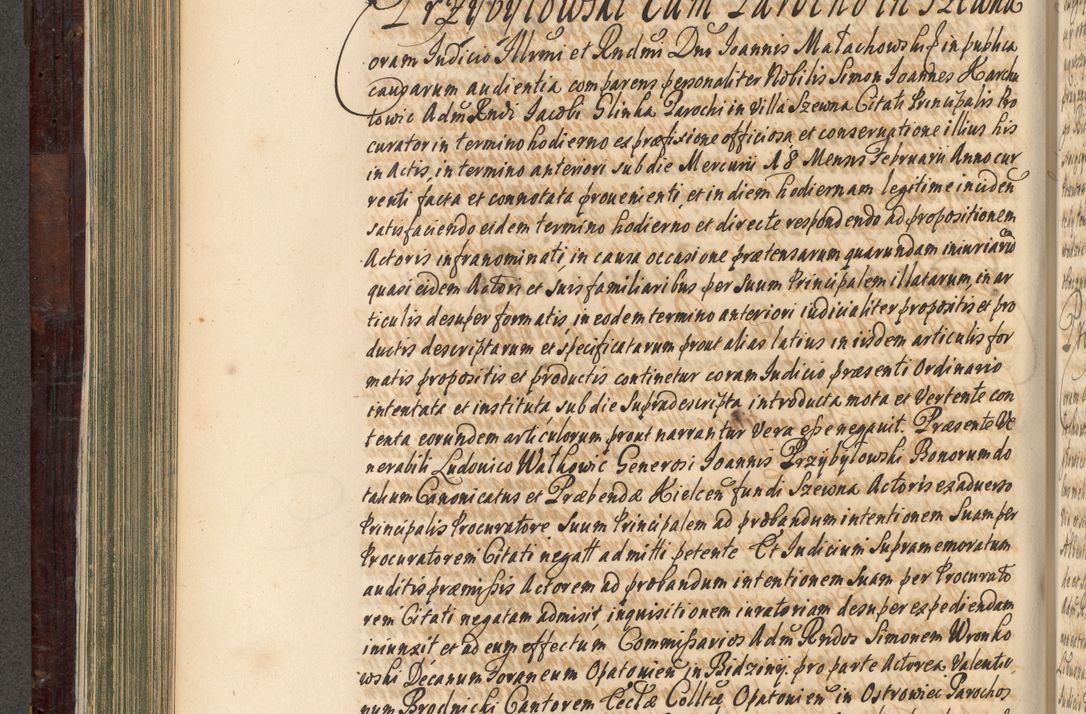 Przybyłowski Cum Parocho in Szewna
Coram Iudicio Illrmi et Rndmi Dni Ioannis Małachowski in publica
causarum audientia comparens personaliter Nobilis Simon Ioannes Karchu
towic Adm Rndi Iacobi Glinka Parochi in Villa Szewna Citati Principalis Pro
curator in termino hodierno ex præfixione officiosa et conseruatione illius his
in Actis, in termino anteriori sub die Mercurii 18 Mensis Februarii Anno cur
renti facta et connotata prouenienti, et in diem hodiernam legitime inciden
satisfaciendo eidem termino hodierno et directe respondendo ad propositionem
Actoris infranominati, in causa occasione prætensarum quarundam iniuriarũ
quasi eidem Actori et suis familiaribus per suum Principalem illatarum, in ar
ticulis desuper formatis, in eodem termino anteriori iudicialiter propositis et pro
ductis descriptarum et specificatarum prout alias latius in iisdem articulis for
matis propositis et productis continetur coram Iudicio præsenti Ordinario
intentata et instituta sub die supradescripta introducta mota et Vertente con
tenta eorundem articulorum prout narrantur Vera eße negauit. Præsente Ve
nerabili Ludouico Wałkowic Generosi Ioannis Przybyłowski Bonorum do
talium Canonicatus et Præbendæ Kielcen fundi Szewna Actoris ex aduerso
Principalis Procuratore Suum Principalem ad probandum intentionem Suam per
Procuratorem Citati negatt admitti petente Et Iudicium Supramemoratum
auditis præmißis Actorem ad probandum intentionem suam per Procurato
rem Citati negatam admisit inquisitionem iuratoriam desuper expediendam
iniunxit et ad eum effectum Commißarios Adm Rndos Simonem Wronko
wski Decanum foraneum Opatouien in Bidziny, pro parte Actorea, Valenti
num Brodnicki Cantorem Ecclæ Colltæ Opatouien in Ostrowiec Parochos